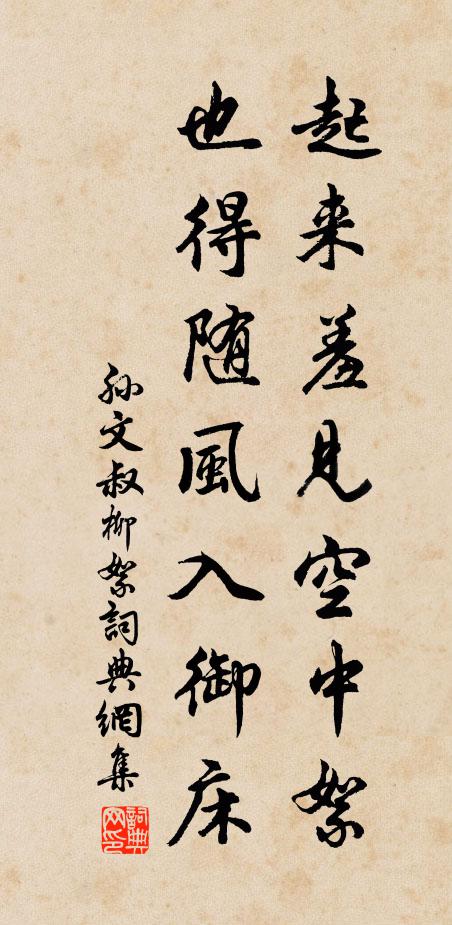 起来羞見空中絮
也得随風入御床
孙文叔柳絮詞典網集
詞典网印